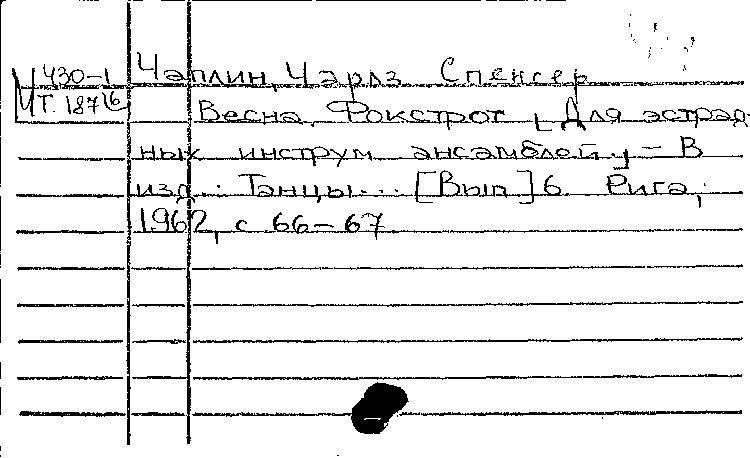 Ч30-1 Чаплин, Чарлз Спенсер
Т.187/6 Весна. Фокстрот. [Для эстрад-
ных инструм. ансамблей.] - В
изд.: Танцы... [Вып]6. Рига,
1962, с. 66-67.